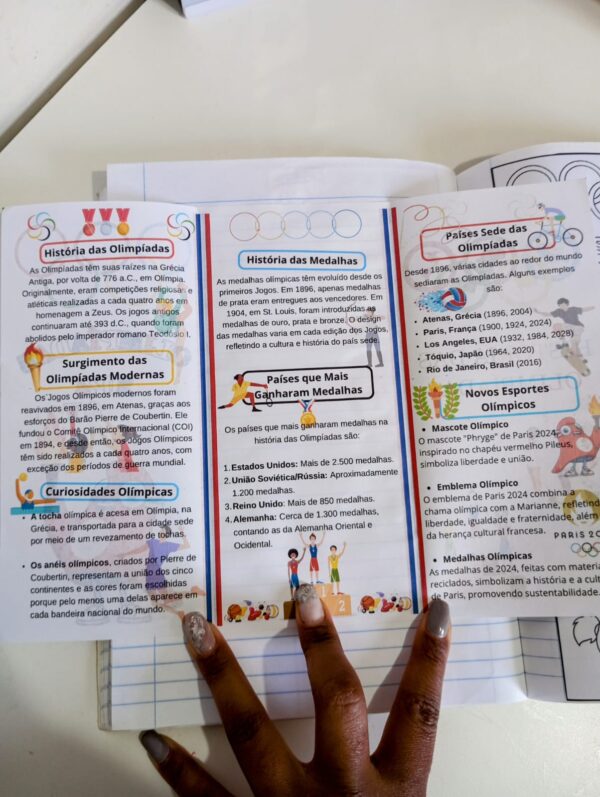 História das Olimpíadas
As Olimpíadas têm suas raízes na Grécia
Antiga, por volta de 776 a.C., em Olímpia.
Originalmente, eram competições religiosas e
atléticas realizadas a cada quatro anos em
homenagem a Zeus. Os jogos antigos
continuaram até 393 d.C., quando foram
abolidos pelo imperador romano Teodósio I.
Surgimento das
Olimpíadas Modernas
Os Jogos Olímpicos modernos foram
reavivados em 1896, em Atenas, graças aos
esforços do Barão Pierre de Coubertin. Ele
fundou o Comitê Olímpico Internacional (COI)
em 1894, e desde então, os Jogos Olímpicos
têm sido realizados a cada quatro anos, com
exceção dos períodos de guerra mundial.
Curiosidades Olímpicas
• A tocha olímpica é acesa em Olímpia, na
Grécia, e transportada para a cidade sede
por meio de um revezamento de tochas.
• Os anéis olímpicos, criados por Pierre de
Coubertin, representam a união dos cinco
continentes e as cores foram escolhidas
porque pelo menos uma delas aparece em
cada bandeira nacional do mundo.
História das Medalhas
As medalhas olímpicas têm evoluído desde os
primeiros Jogos. Em 1896, apenas medalhas
de prata eram entregues aos vencedores. Em
1904, em St. Louis, foram introduzidas as
medalhas de ouro, prata e bronze. O design
das medalhas varia em cada edição dos Jogos,
refletindo a cultura e história do país sede.
Países que Mais
Ganharam Medalhas
Os países que mais ganharam medalhas na
história das Olimpíadas são:
1. Estados Unidos: Mais de 2.500 medalhas.
2. União Soviética/Rússia: Aproximadamente
1.200 medalhas.
3. Reino Unido: Mais de 850 medalhas.
4. Alemanha: Cerca de 1.300 medalhas,
contando as da Alemanha Oriental e
Ocidental.
1
2
Países Sede das
Olimpíadas
Desde 1896, várias cidades ao redor do mundo
sediaram as Olimpíadas. Alguns exemplos
são:
• Atenas, Grécia (1896, 2004)
• Paris, França (1900, 1924, 2024)
• Los Angeles, EUA (1932, 1984, 2028)
• Tóquio, Japão (1964, 2020)
• Rio de Janeiro, Brasil (2016)
Novos Esportes
Olímpicos
• Mascote Olímpico
O mascote "Phryge" de Paris 2024,
inspirado no chapéu vermelho Pileus,
simboliza liberdade e união.
• Emblema Olímpico
O emblema de Paris 2024 combina a
chama olímpica com a Marianne, refletind
liberdade, igualdade e fraternidade, além
da herança cultural francesa.
PARIS 2
• Medalhas Olímpicas
As medalhas de 2024, feitas com materia
reciclados, simbolizam a história e a cult
de Paris, promovendo sustentabilidade.